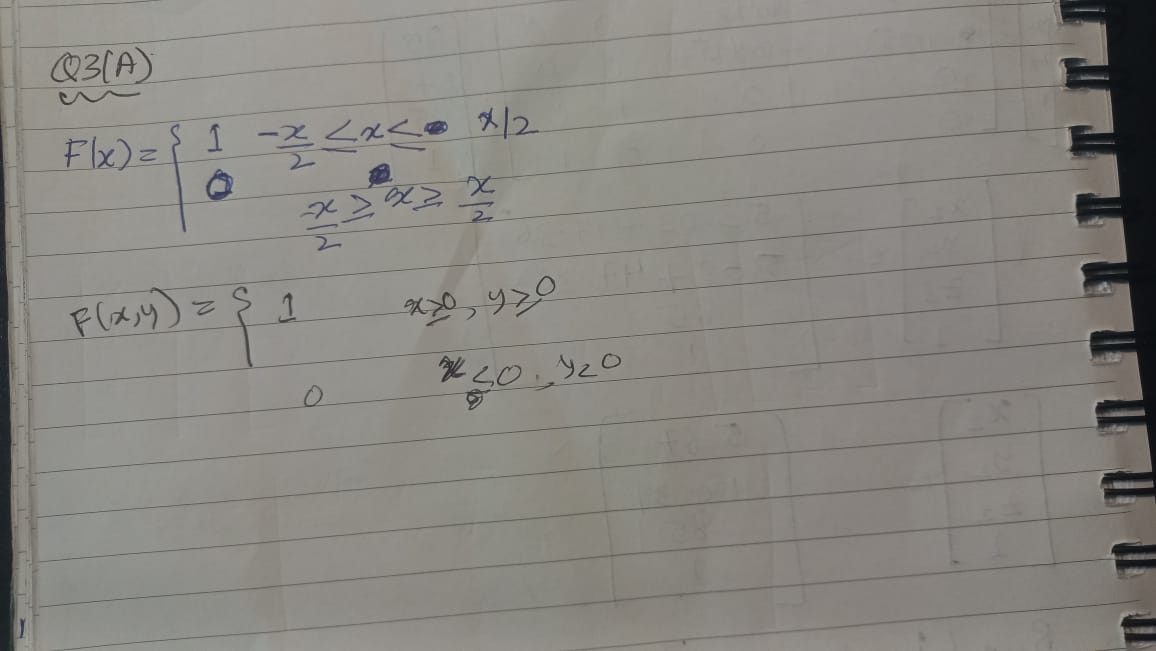 Q3(A)
F(x) = { 1 -x/2 ≤ x ≤ x/2
0 -x/2 ≥ x ≥ x/2
F(x,y) = { 1 x≥0, y≥0
0 x≤0, y<0